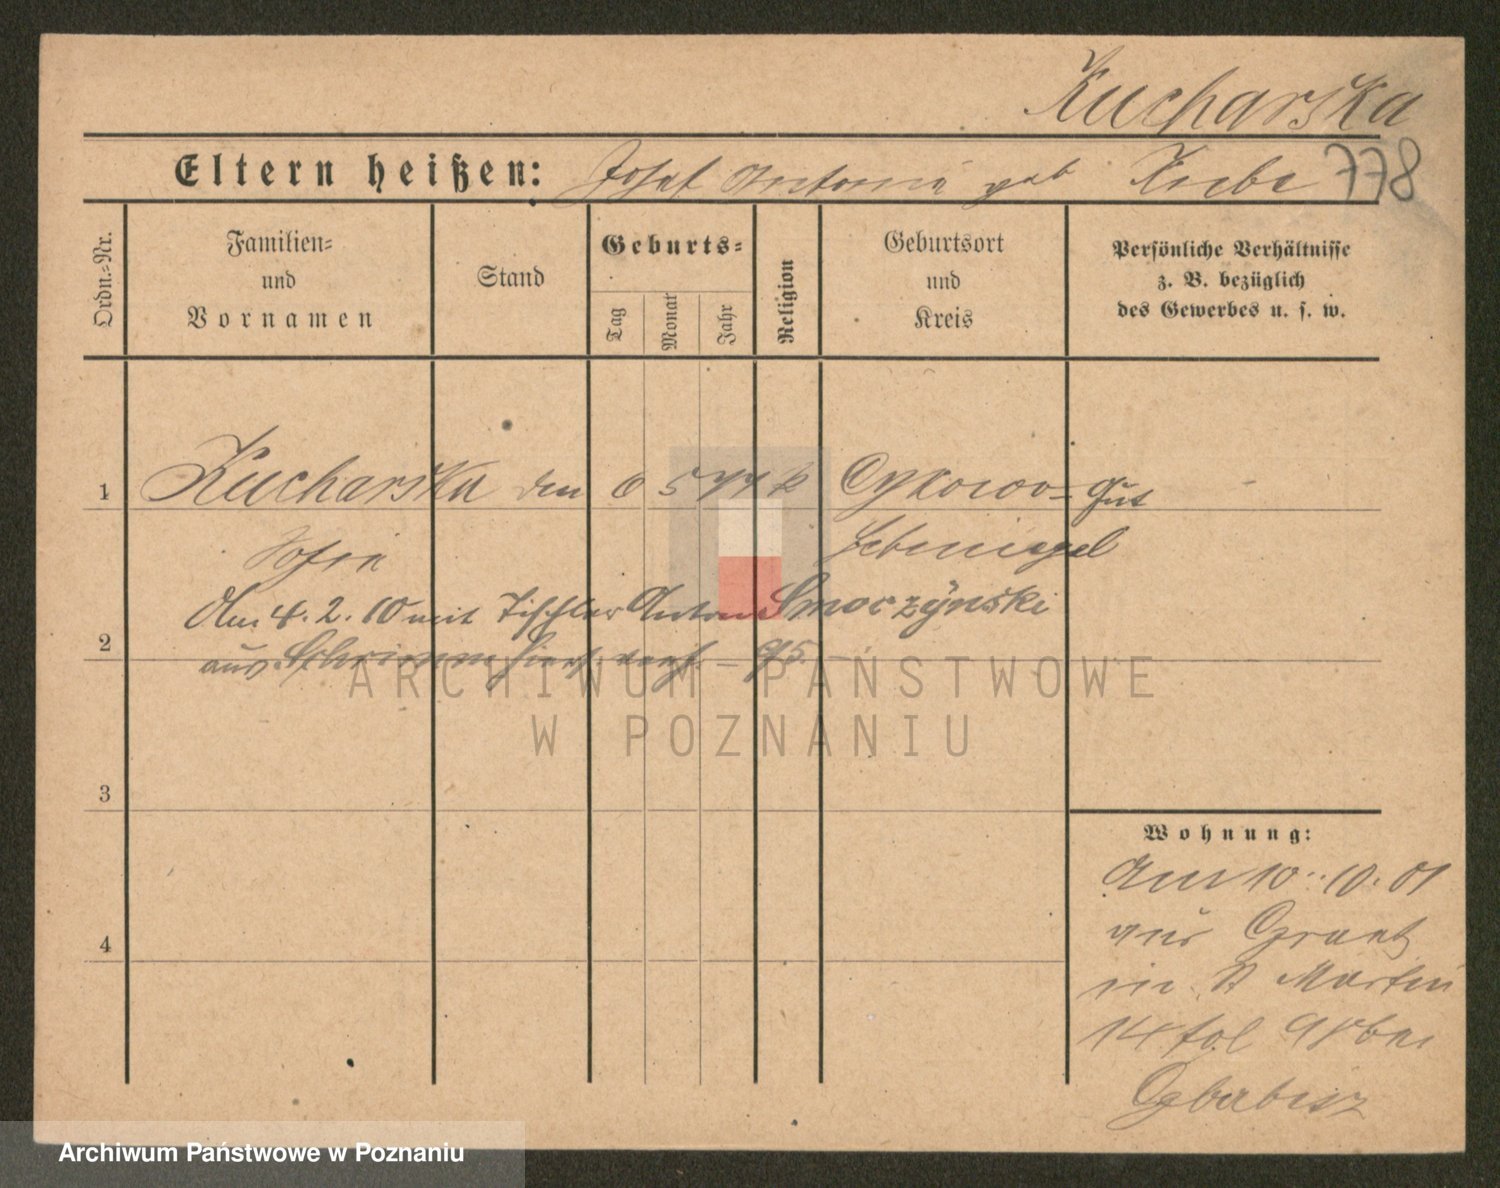 Kucharska
Eltern heißen: Josef Antonie geb 778
Ordn.-Nr.
Familien-
und
Vornamen
Stand
Geburts-
Tag
Monat
Jahr
Religion
Geburtsort
und
Kreis
Persönliche Verhältnisse
z. B. bezüglich
des Gewerbes u. s. w.
1 Kucharska den 6 5 77 k Gut
Sofie
Am 4. 2. 10 mit Tischler Anton Smoczynski
2
aus Schrimm verh. 95.
ARCHIWUM PAŃSTWOWE
W POZNANIU
3
Wohnung:
Am 10. 10. 01
aus Graetz
in St Martin
4
14 fol 98 bei
Archiwum Państwowe w Poznaniu